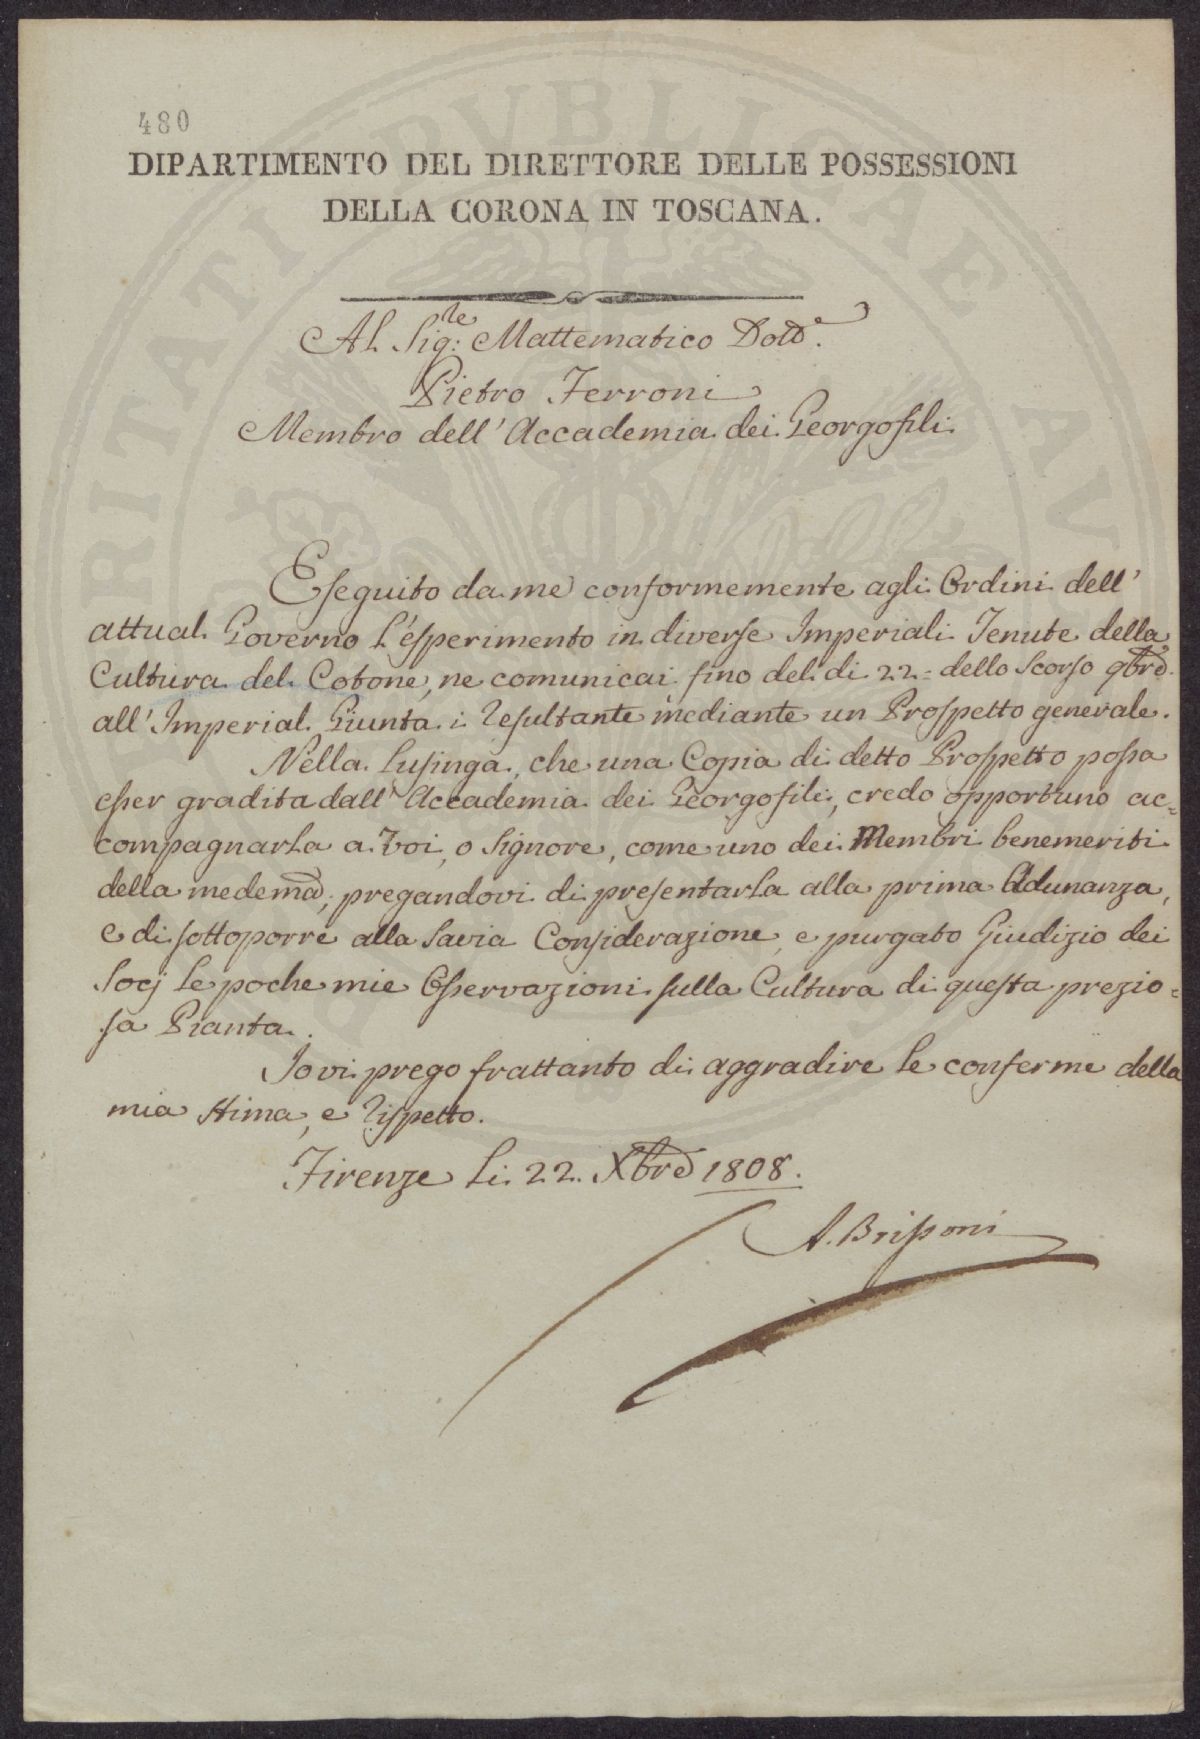 480
DIPARTIMENTO DEL DIRETTORE DELLE POSSESSIONI
DELLA CORONA IN TOSCANA.
Al Sig.le Mattematico Dott.e
Pietro Ferroni
Membro dell' Accademia dei Georgofili
Eseguito da me conformemente agli Ordini dell'
attual Governo l'esperimento in diverse Imperiali Tenute della
Cultura del Cotone, ne comunicai fino del di 22= dello Scorso 9bre
all' Imperial Giunta i resultante mediante un Prospetto generale.
Nella lusinga, che una Copia di detto Prospetto possa
esser gradita dall' Accademia dei Georgofili, credo opportuno ac=
compagnarla a Voi, o Signore, come uno dei Membri benemeriti
della medema; pregandovi di presentarla alla prima Adunanza,
e di sottoporre alla Savia Considerazione, e purgato Giudizio dei
Socj le poche mie Osservazioni sulla Cultura di questa prezio=
sa Pianta.
Io vi prego frattanto di aggradire le conferme della
mia stima, e rispetto.
Firenze li 22. Xbre 1808.
A. Brissoni
RITATI PVBLICAE AV